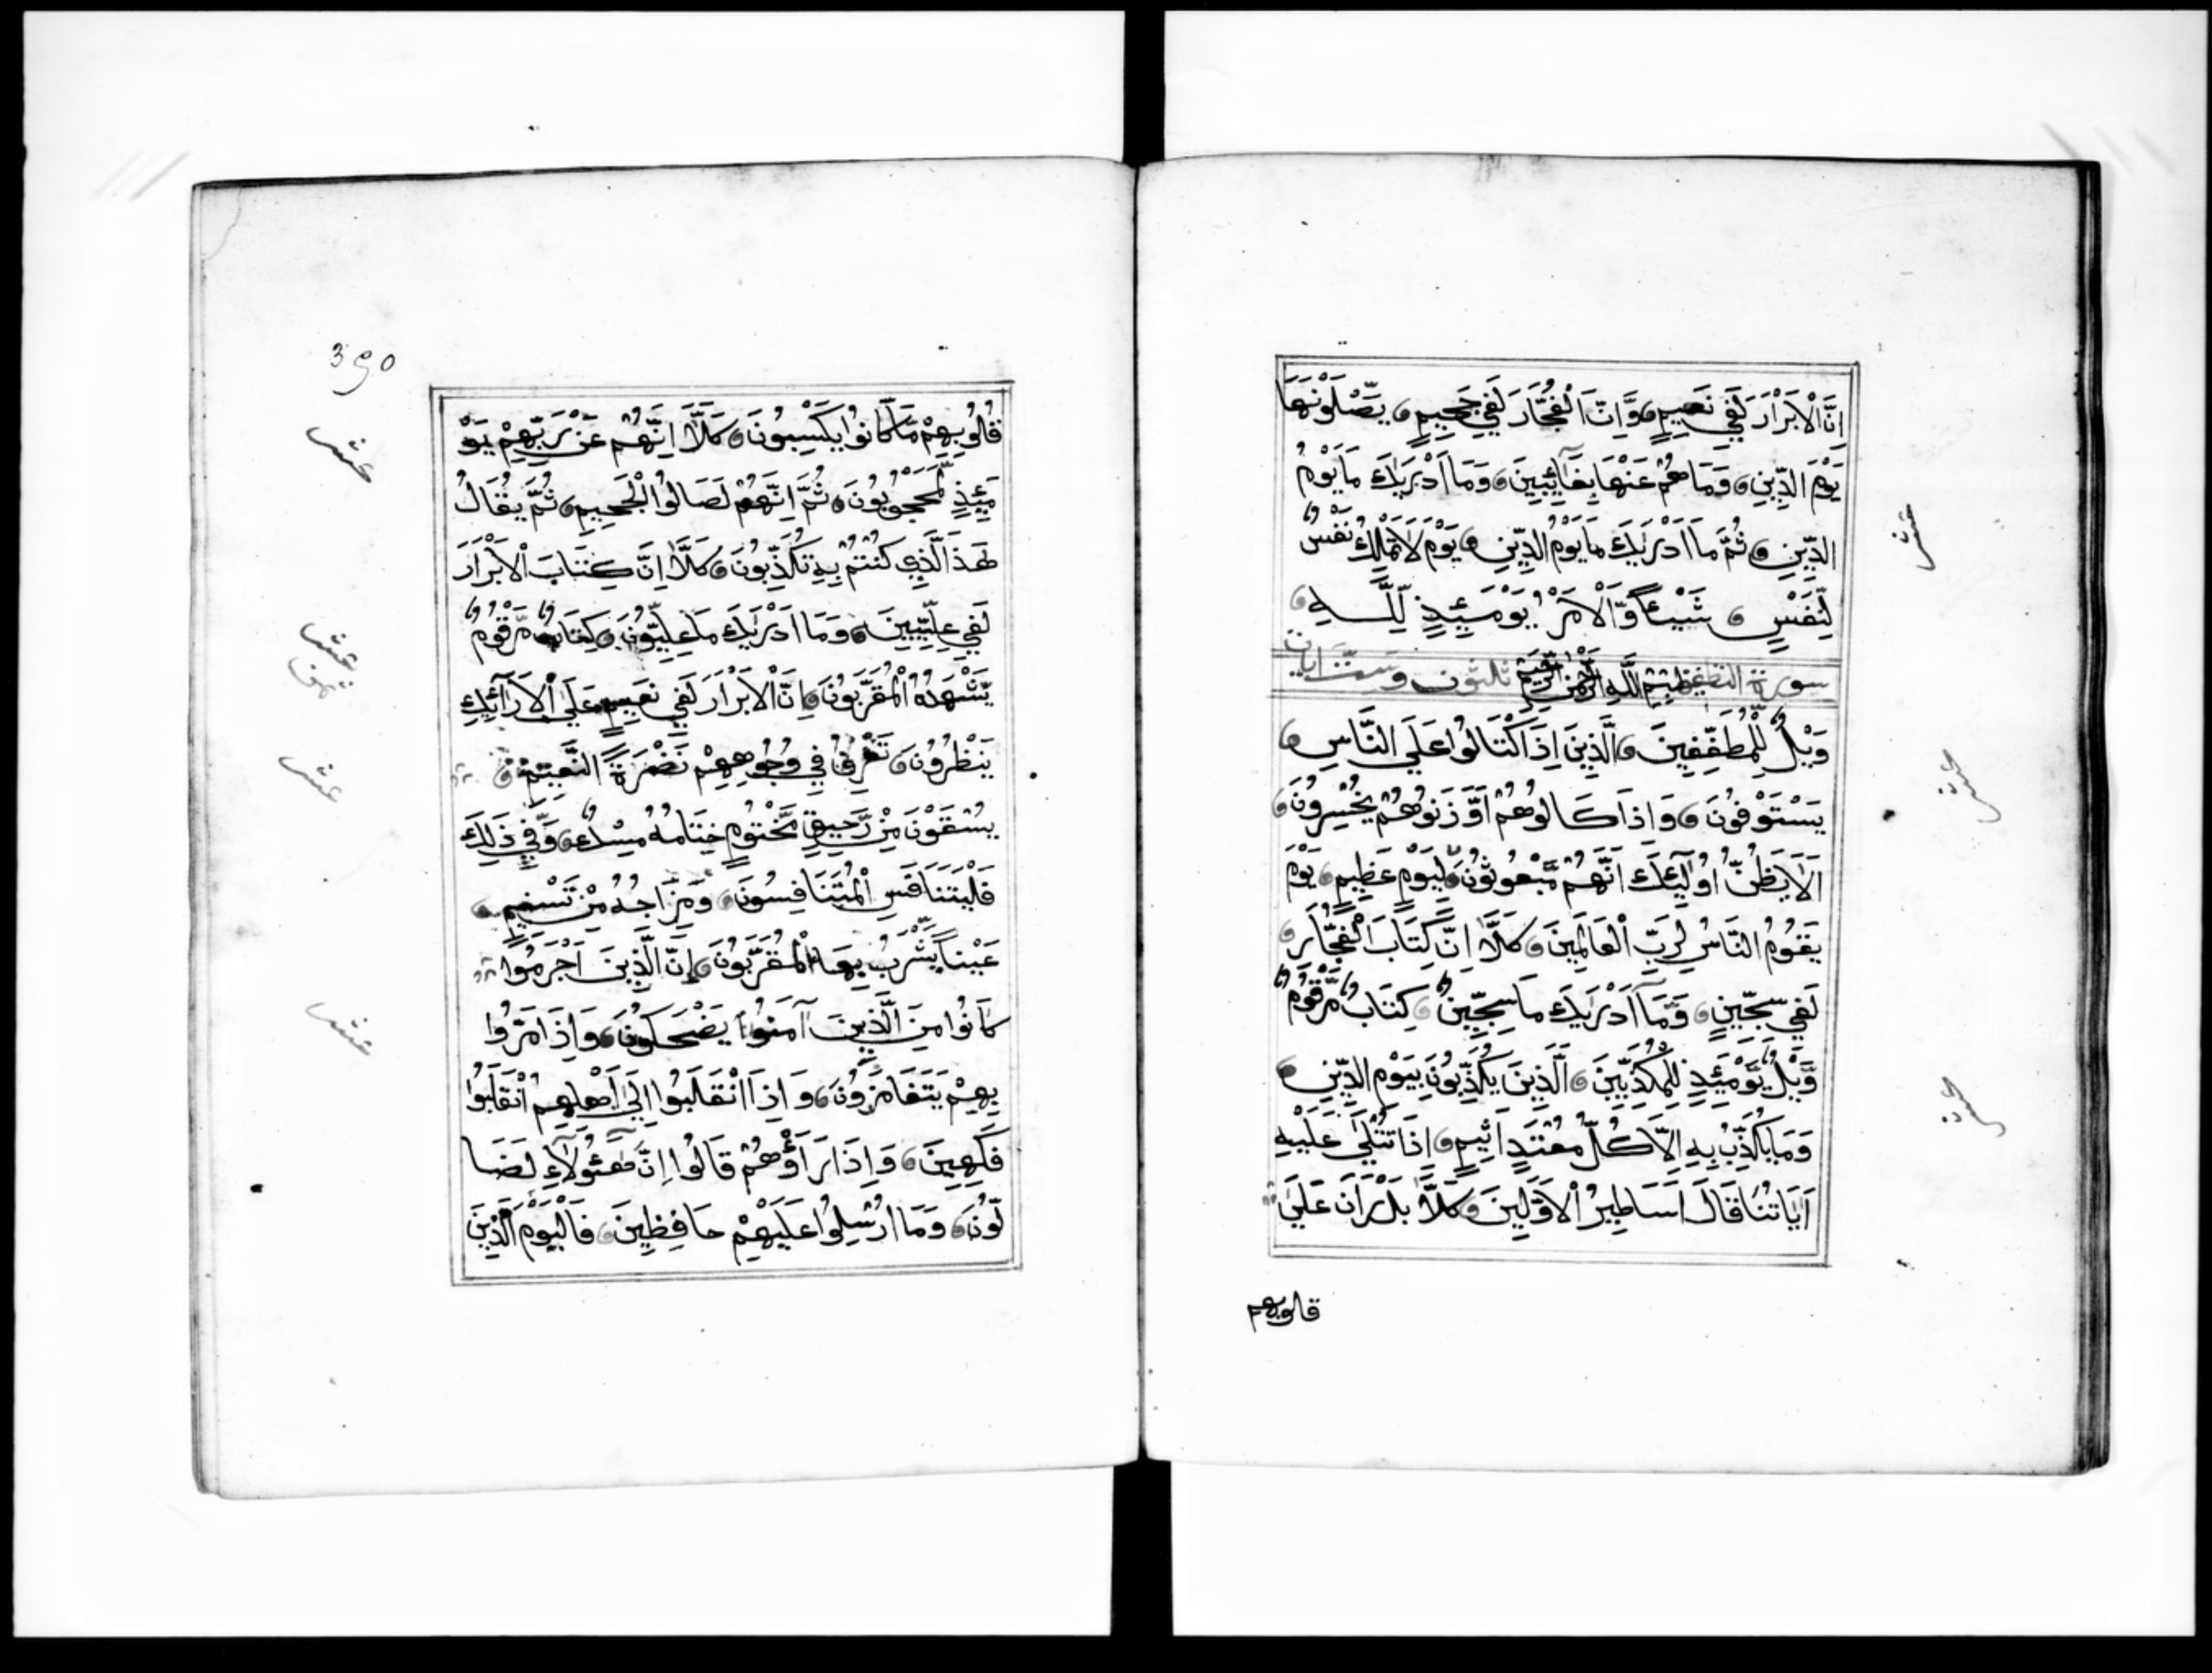 اِنَّ الْاَبْرَارَ لَفِي نَعِيمٍ وَّاِنَّ الْفُجَّارَ لَفِي جَحِيمٍ يَّصْلَوْنَهَا
يَوْمَ الدِّينِ وَمَا هُمْ عَنْهَا بِغَآئِبِينَ وَمَا اَدْرَيكَ مَا يَوْمُ
الدِّينِ ثُمَّ مَا اَدْرَيكَ مَا يَوْمُ الدِّينِ يَوْمَ لَا تَمْلِكُ نَفْسٌ
لِّنَفْسٍ شَيْئًا وَّالْاَمْرُ يَوْمَئِذٍ لِّلَّهِ
سورة التطفيف بسم الله الرحمن الرحيم ثلثون وست ايات
وَيْلٌ لِّلْمُطَفِّفِينَ الَّذِينَ اِذَا اكْتَالُوا عَلَي النَّاسِ
يَسْتَوْفُونَ وَاِذَا كَالُوهُمْ اَوْ وَّزَنُوهُمْ يُخْسِرُونَ
اَلَا يَظُنُّ اُولَٓئِكَ اَنَّهُمْ مَّبْعُوثُونَ لِيَوْمٍ عَظِيمٍ يَوْمَ
يَقُومُ النَّاسُ لِرَبِّ الْعَالَمِينَ كَلَّا اِنَّ كِتَابَ الْفُجَّارِ
لَفِي سِجِّينٍ وَّمَآ اَدْرَيكَ مَا سِجِّينٌ كِتَابٌ مَّرْقُومٌ
وَّيْلٌ يَّوْمَئِذٍ لِّلْمُكَذِّبِينَ الَّذِينَ يُكَذِّبُونَ بِيَوْمِ الدِّينِ
وَمَا يُكَذِّبُ بِهِ اِلَّا كُلُّ مُعْتَدٍ اَثِيمٍ اِذَا تُتْلَي عَلَيْهِ
اَيَاتُنَا قَالَ اَسَاطِيرُ الْاَوَّلِينَ كَلَّا بَلْ رَانَ عَلَي
قلوبهم
عشر
عشر
عشر
390
قُلُوبِهِمْ مَّا كَانُوا يَكْسِبُونَ كَلَّا اِنَّهُمْ عَنْ رَبِّهِمْ يَوْ
مَئِذٍ لَّمَحْجُوبُونَ ثُمَّ اِنَّهُمْ لَصَالُوا الْجَحِيمِ ثُمَّ يُقَالُ
هَذَا الَّذِي كُنْتُمْ بِهِ تُكَذِّبُونَ كَلَّا اِنَّ كِتَابَ الْاَبْرَارِ
لَفِي عِلِّيِّينَ وَمَا اَدْرَيكَ مَا عِلِّيُّونَ كِتَابٌ مَّرْقُومٌ
يَّشْهَدُهُ الْمُقَرَّبُونَ اِنَّ الْاَبْرَارَ لَفِي نَعِيمٍ عَلَي الْاَرَآئِكِ
يَنْظُرُونَ تَعْرِفُ فِي وُجُوهِهِمْ نَضْرَةَ النَّعِيمِ
يُسْقَوْنَ مِنْ رَّحِيقٍ مَّخْتُومٍ خِتَامُهُ مِسْكٌ وَّفِي ذَلِكَ
فَلْيَتَنَافَسِ الْمُتَنَافِسُونَ وَمِزَاجُهُ مِنْ تَسْنِيمٍ
عَيْنًا يَّشْرَبُ بِهَا الْمُقَرَّبُونَ اِنَّ الَّذِينَ اَجْرَمُوا
كَانُوا مِنَ الَّذِينَ اٰمَنُوا يَضْحَكُونَ وَاِذَا مَرُّوا
بِهِمْ يَتَغَامَزُونَ وَاِذَا انْقَلَبُوا اِلَي اَهْلِهِمُ انْقَلَبُوا
فَكِهِينَ وَاِذَا رَاَوْهُمْ قَالُوا اِنَّ هَٓؤُلَآءِ لَضَا
لُّونَ وَمَا اُرْسِلُوا عَلَيْهِمْ حَافِظِينَ فَالْيَوْمَ الَّذِينَ
عشر
عشر
ثمن
عشر
عشر